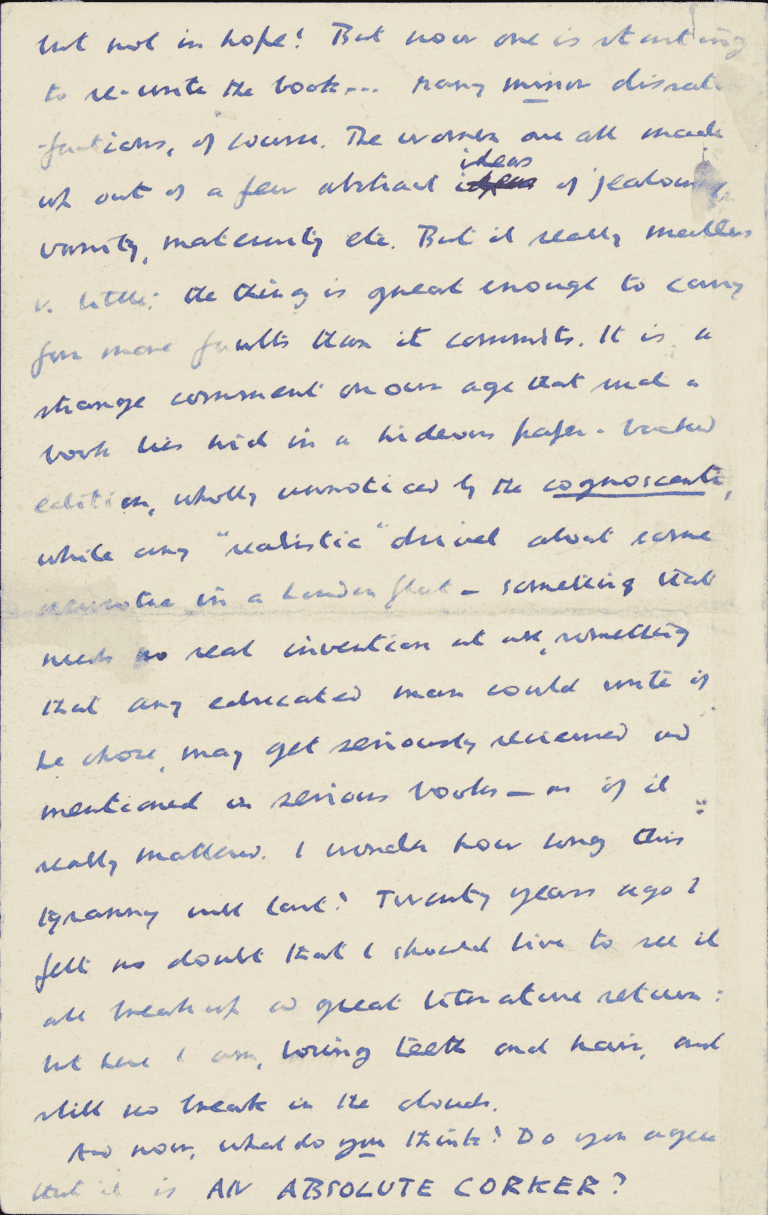 but not in hope! But now one is starting
to re-write the book... Many minor dissatis-
factions, of course. The women are all made
up out of a few abstract ideas of jealousy,
vanity, maternity etc. But it really matters
v. little: the thing is great enough to carry
far more faults than it commits. It is a
strange comment on our age that such a
book lies hid in a hideous paper-backed
edition, wholly unnoticed by the cognoscenti,
while any "realistic" drivel about some
neurotic in a London flat – something that
needs no real invention at all, something
that any educated man could write if
he chose, may get seriously reviewed and
mentioned in serious books – as if it
really mattered. I wonder how long this
tyranny will last? Twenty years ago I
felt no doubt that I should live to see it
all break up and great literature return:
but here I am, losing teeth and hair, and
still no break in the clouds.
And now, what do you think? Do you agree
that it is AN ABSOLUTE CORKER?